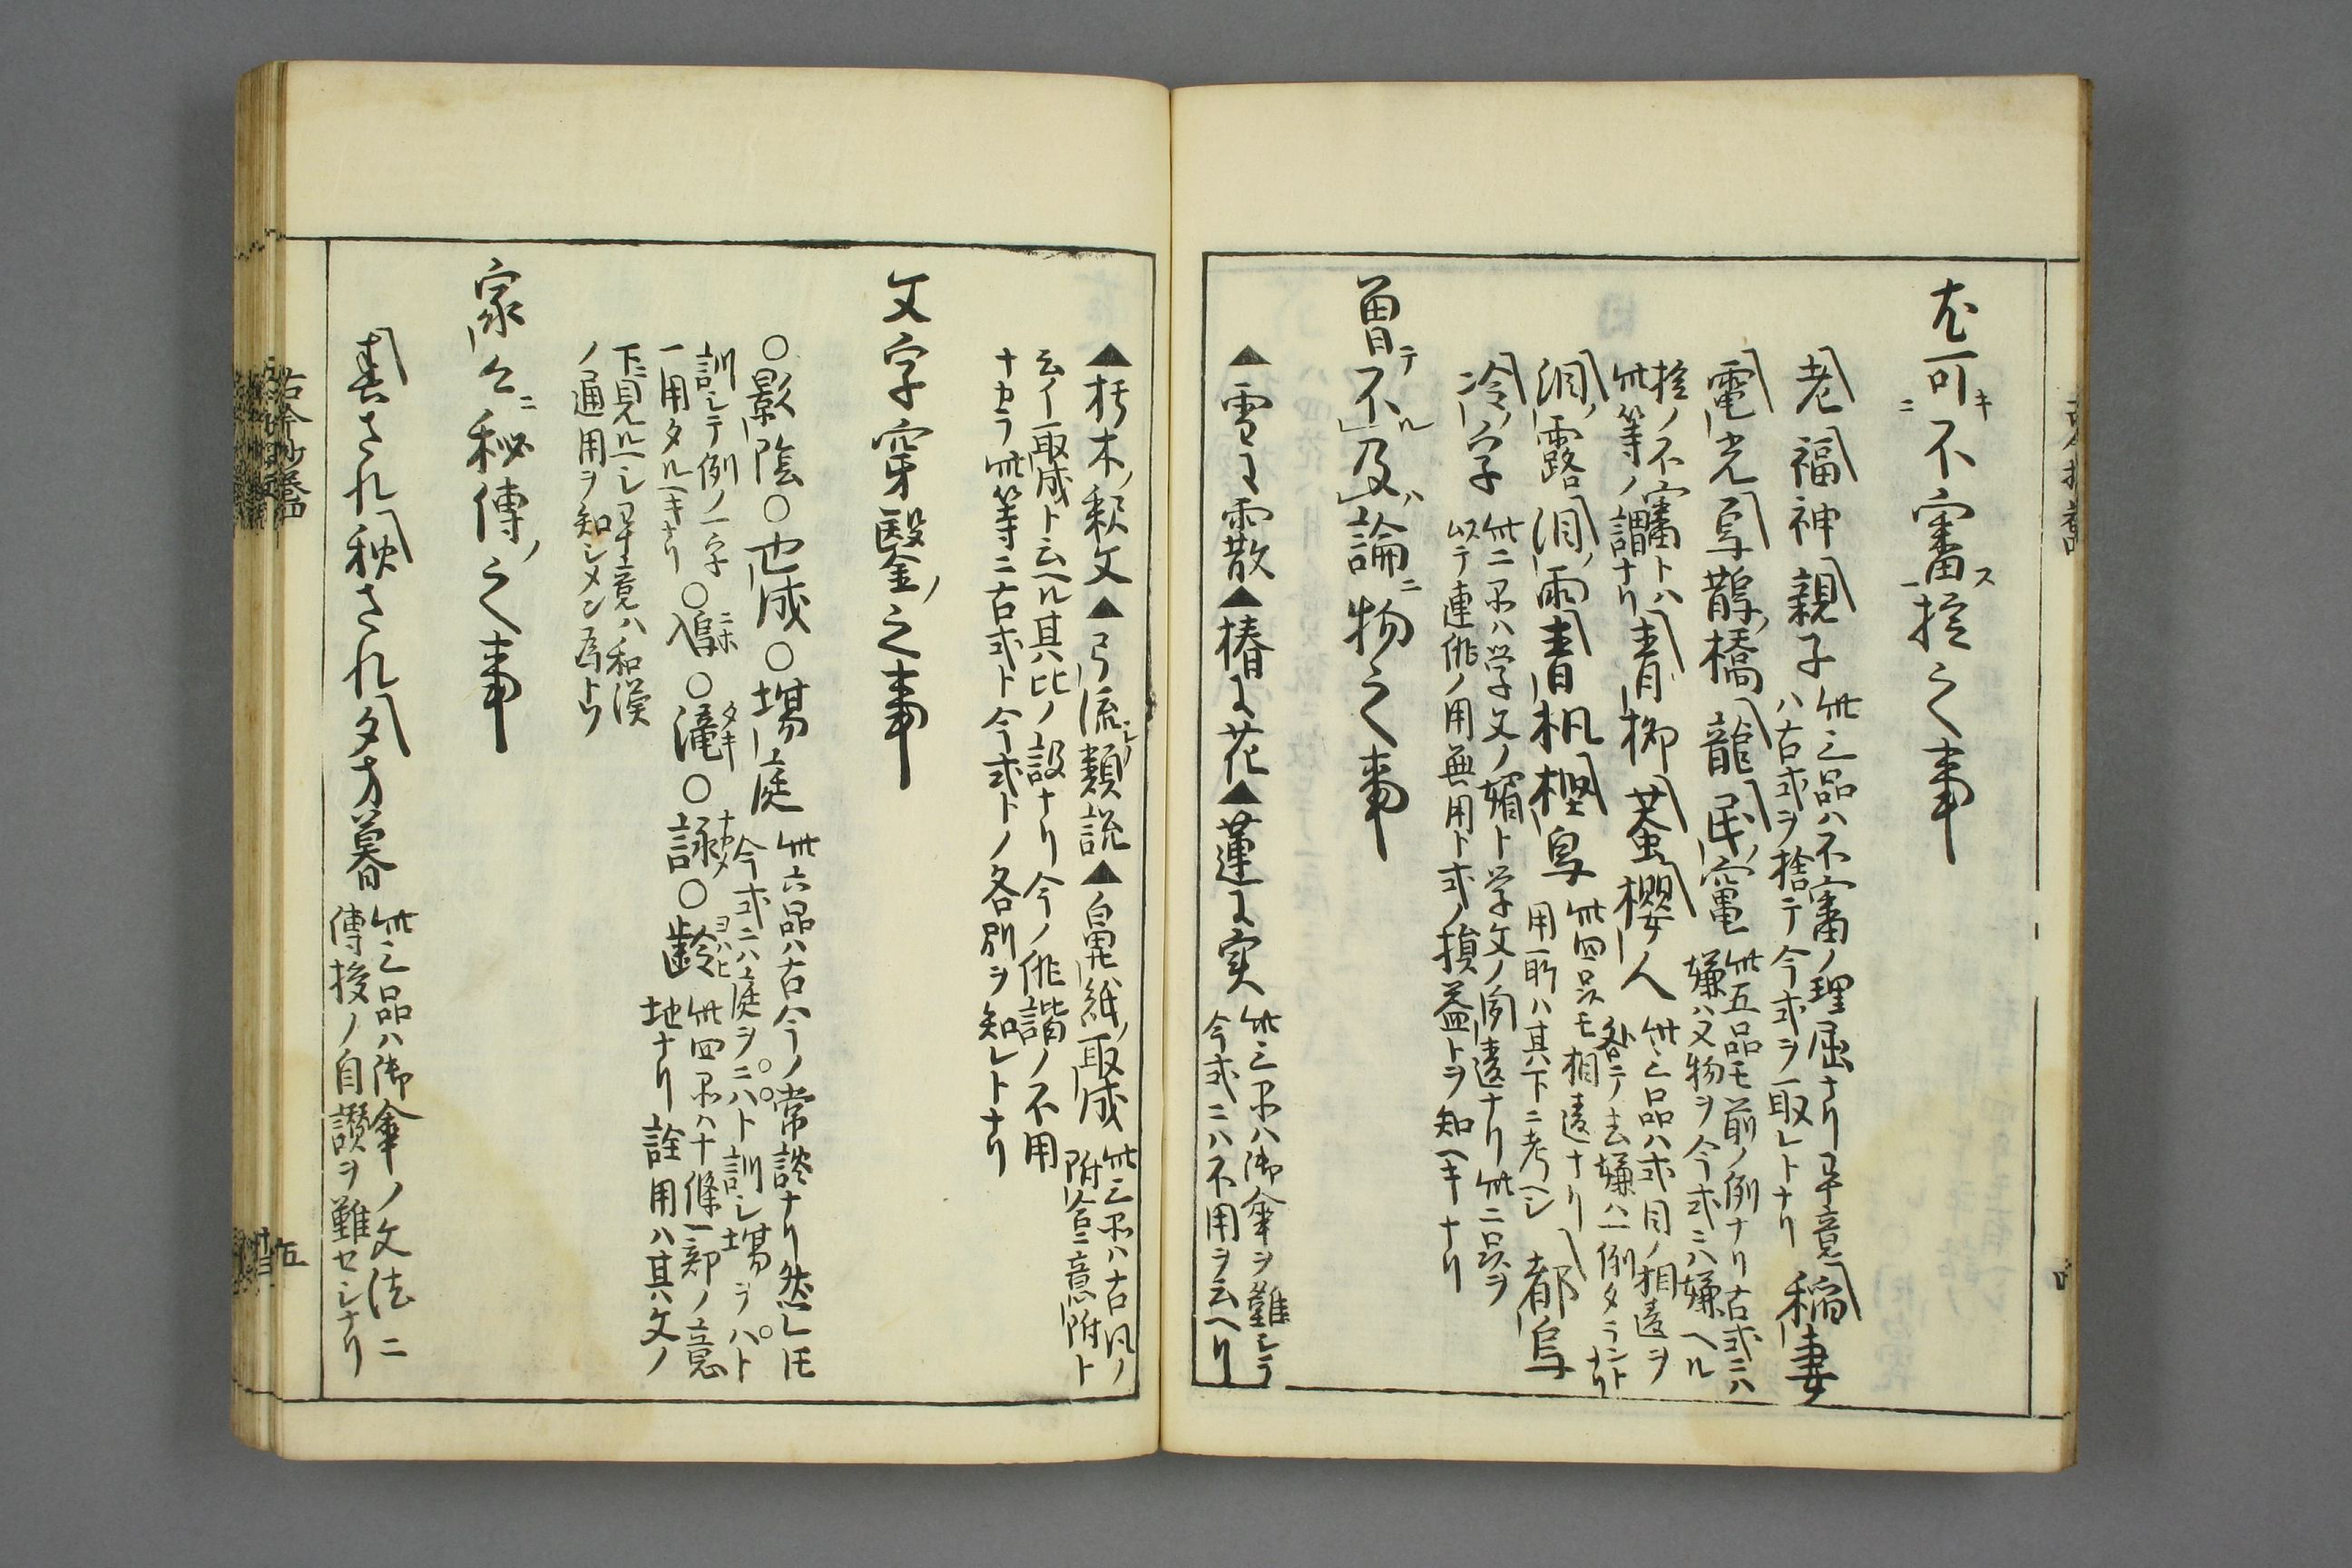 可キニ不審ス一捻之事
老福神親子 此三品ハ不審ノ理屈ナリ畢竟
ハ古式ヲ捨テ今式ヲ取レトナリ 稲妻
電光烏鵲ノ橋龍民ノ竃 此五品モ前ノ例ナリ古式ニハ
嫌ハヌ物ヲ今式ニハ嫌ヘル
捻ノ不審トハ
此等ノ謂ナリ 青柳蚕桜人 此三品ハ式目ノ相違ヲ
各テノ去嫌ハ一例タラントナリ
泪ノ露泪ノ雨青枫樫鳥 此四品モ相違ナリ
用所ハ其下ニ考ヘシ 都鳥
冷ノ字 此二品ハ学文ノ媚ト学文ノ間違ナリ此二品ヲ
以テ連俳ノ用無用ト式ノ損益トヲ知ヘキナリ
曽テ不ル及ハ論ニ物之事
▲雪ニ霰▲椿ニ花▲蓮ニ実 此三品ハ御傘ヲ難シテ
今式ニハ不用ヲ云ヘリ
▲朽木ノ釈文▲弓流シノ類説▲鼻紙ノ取成 此三品ハ古凡ノ
附合ニ意附ト
云イ取成ト云ヘル其比ノ設ナリ今ノ俳諧ノ不用
ナカラ此等ニ古式ト今式トノ各別ヲ知レトナリ
文字穿鑿ノ之事
○影陰○也成○場庭 此六品ハ古今ノ常談ナリ然レ𪜈
今式ニハ庭ヲニハト訓シ場ヲハト
訓シテ例ノ一字
一用タルヘキナリ ○鳰ニホ○滝タキ○詠ナカメ○齢ヨハヒ 此四品ハ十條一部ノ意
地ナリ詮用ハ其文ノ
下ニ見ルヘシ畢竟ハ和漢
ノ通用ヲ知シメン為トソ
家々ニ秘傳ノ之事
春されハ秋されハ夕方暮 此三品ハ御傘ノ文法ニ
傳授ノ自讃ヲ難セシナリ
古今抄巻四
五